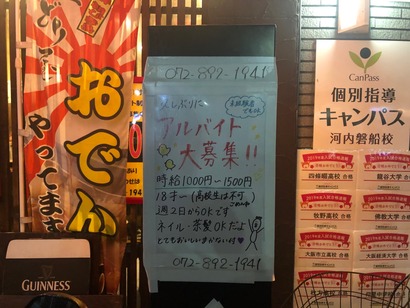 おでん
やってます
GUINNESS
072-892-1941
久しぶりに
未経験者でもOK
アルバイト
大募集!!
時給1000円～1500円
18才～(高校生は不可
ごめんネ)
週2日からOKです
ネイル・茶髪OKだよ
とてもおいしいまかない付♥
072-892-1941
CanPass
個別指導
キャンパス
河内磐船校
四條畷高校 合格
龍谷大学 合格
牧野高校 合格
佛教大学 合格
大阪市立高校 合格
大阪経済大学 合格